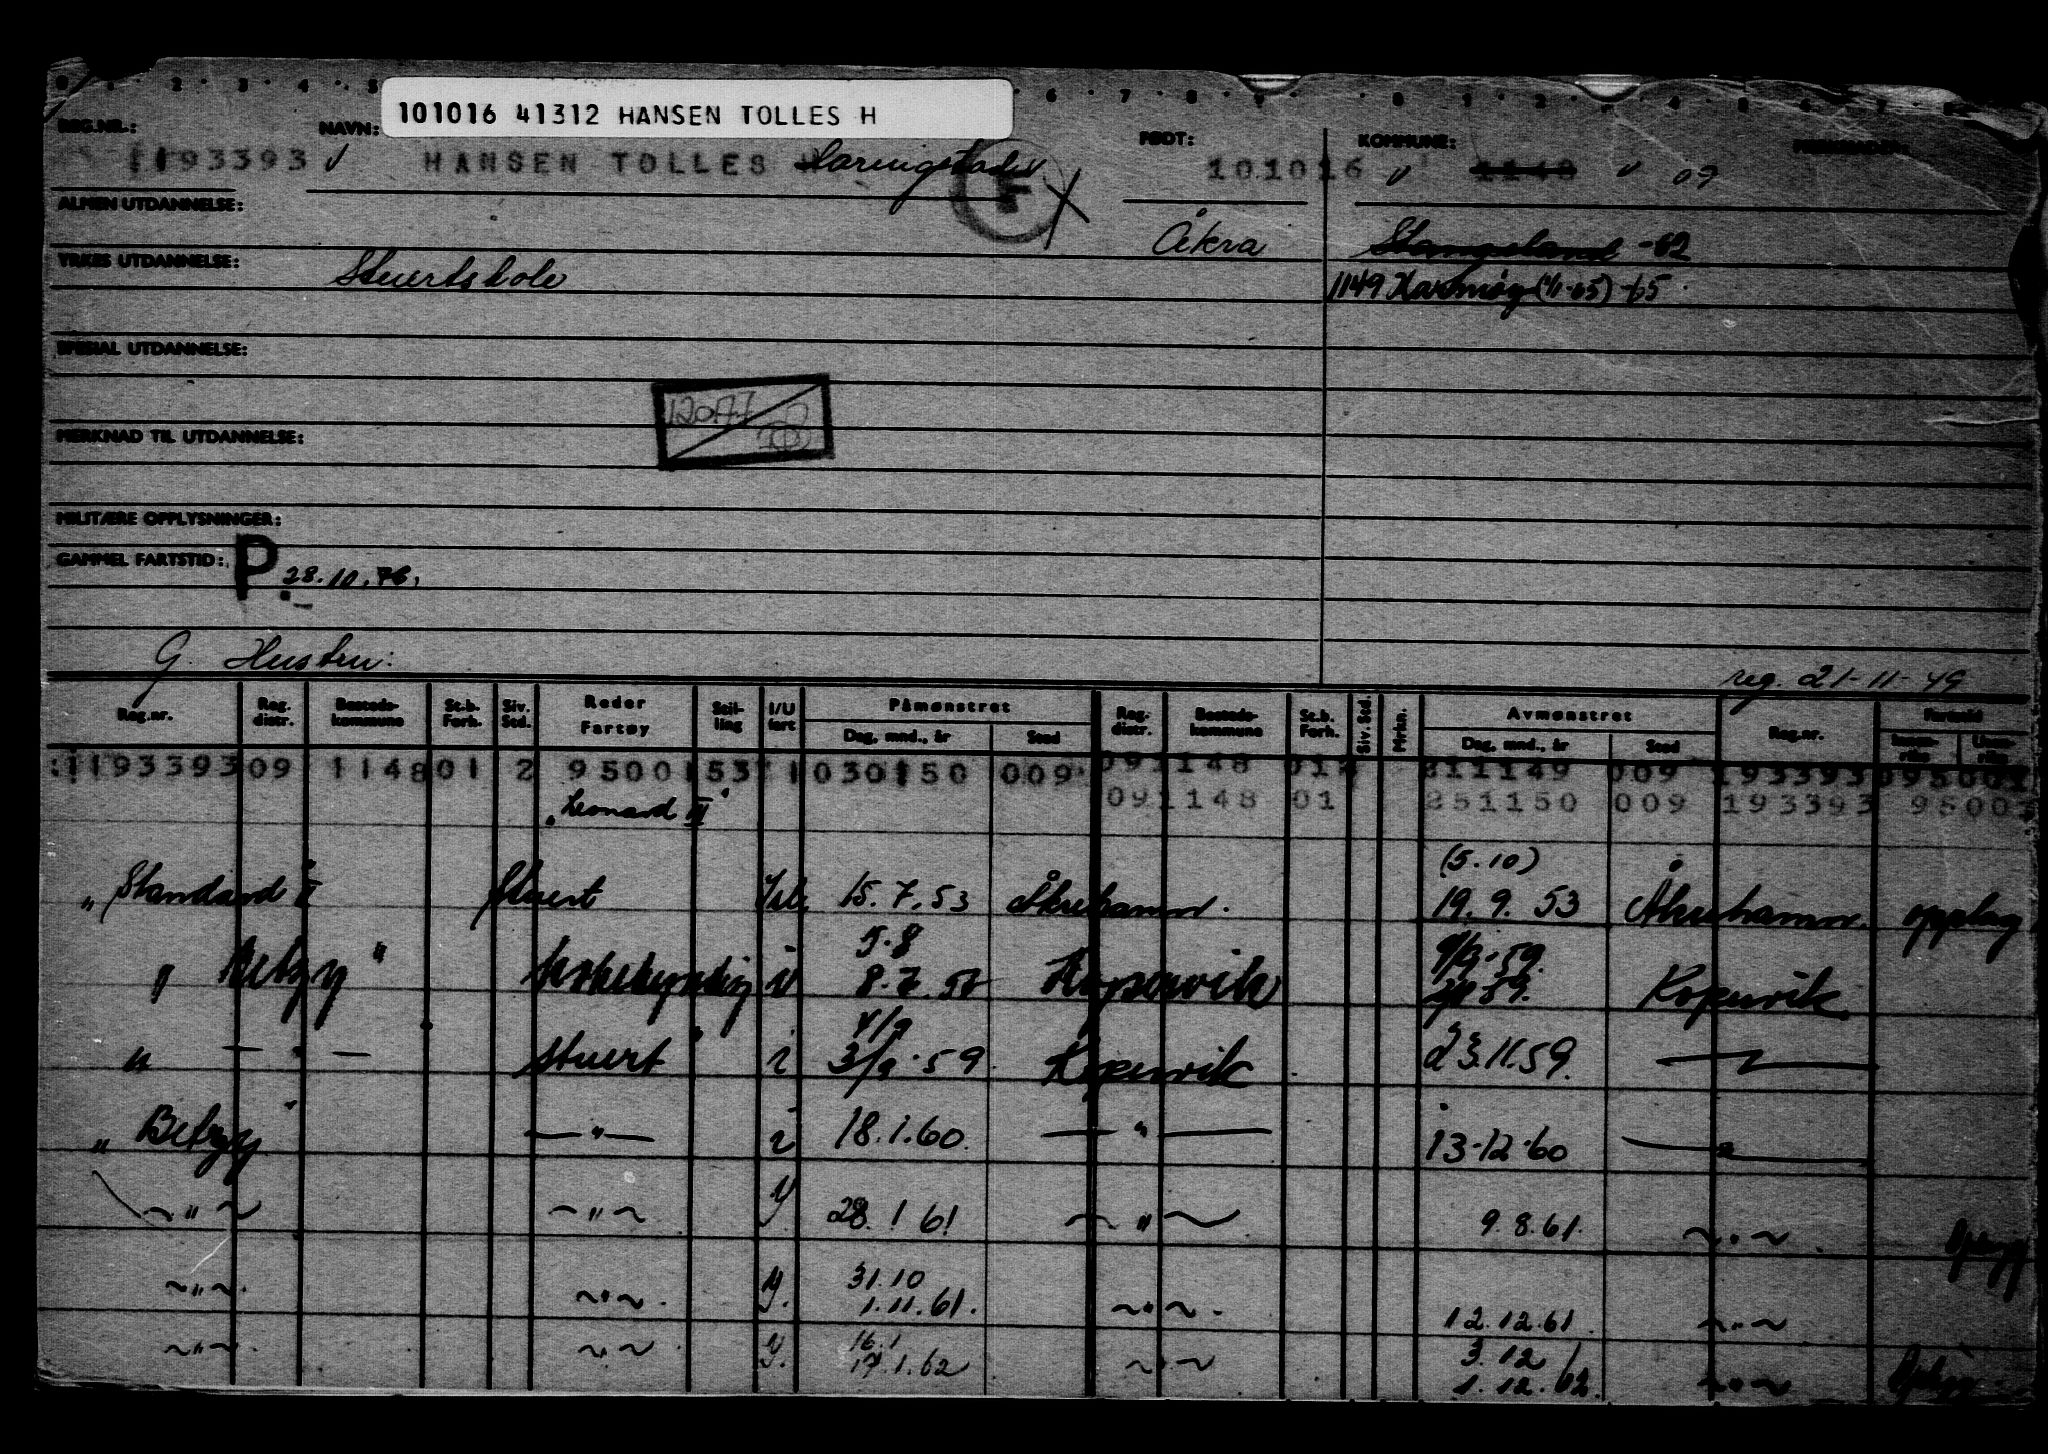 101016 41312 HANSEN TOLLES H
REG.NR.: NAVN: FØDT: KOMMUNE:
1193393 HANSEN TOLLES 101016 1148 09
ALMEN UTDANNELSE:
Åkra Stangeland -62
YRKES UTDANNELSE: Stuertskole
1149 Karmøy (1/1-65) -65
SPESIAL UTDANNELSE:
MERKNAD TIL UTDANNELSE:
MILITÆRE OPPLYSNINGER:
GAMMEL FARTSTID: P 28.10.76.
G. Hustru:
reg. 21-11-49
Reg.nr. Reg. distr. Bosteds-kommune St.b. Forh. Siv. Std. Reder Fartøy Stil-ling I/U fart Påmønstret Dag, mnd., år Sted Reg. distr. Bosteds-kommune St.b. Forh. Siv. Std. Mrkn. Avmønstret Dag, mnd., år Sted Reg.nr. Fartstid Innen-riks Uten-riks
1193393 09 1148 01 2 9500 153 1 030150 009 091148 01 211149 009 193393
"Leonard II" 091148 01 251150 009 193393 9500
(5.10)
"Standard II Stuert 15.7.53 Åkrehamn. 19.9.53 Åkrehamn. opplag
5.8 9/9-59.
"Betzy" i 8.7.57 Kopervik 59. Kopervik
4/9
" — " — Stuert i 3/9.59 Kopervik 23.11.59. — " —
"Betzy" — " — i 18.1.60 — " — 13-12-60 — " —
~ " ~ ~ " ~ 28.1 61 ~ " ~ 9.8.61. ~ " ~
31.10
~ " ~ ~ " ~ 1.11.61. ~ " ~ 12.12.61 ~ " ~
16.1 3.12
~ " ~ ~ " ~ 17.1.62 ~ " ~ 1.12.62. ~ " ~